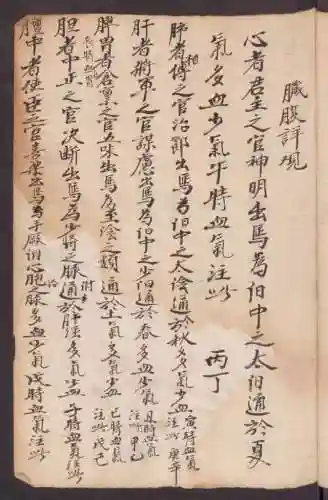 臟腹詳覌
心者君主之官神明出焉為伯中之太伯通於夏
氣多血少氣午時血氣注此 丙丁
肺者相傅之官治節出焉為伯中之太陰通於秋多氣少血寅時血氣注此 庚辛
肝者將軍之官謀慮出焉為伯中之少伯通於春多血少氣丑時血氣注此 甲乙
脾胃者倉廩之官五味出焉為至陰之類通於土氣多氣少血巳時血氣注此 戊己
胆者中正之官次断出焉為少將之脉通於肝經多氣少血子時血氣注此
膻中者使臣之官喜樂出焉為手厥伯心胞之脉多血少氣戌時血氣注此